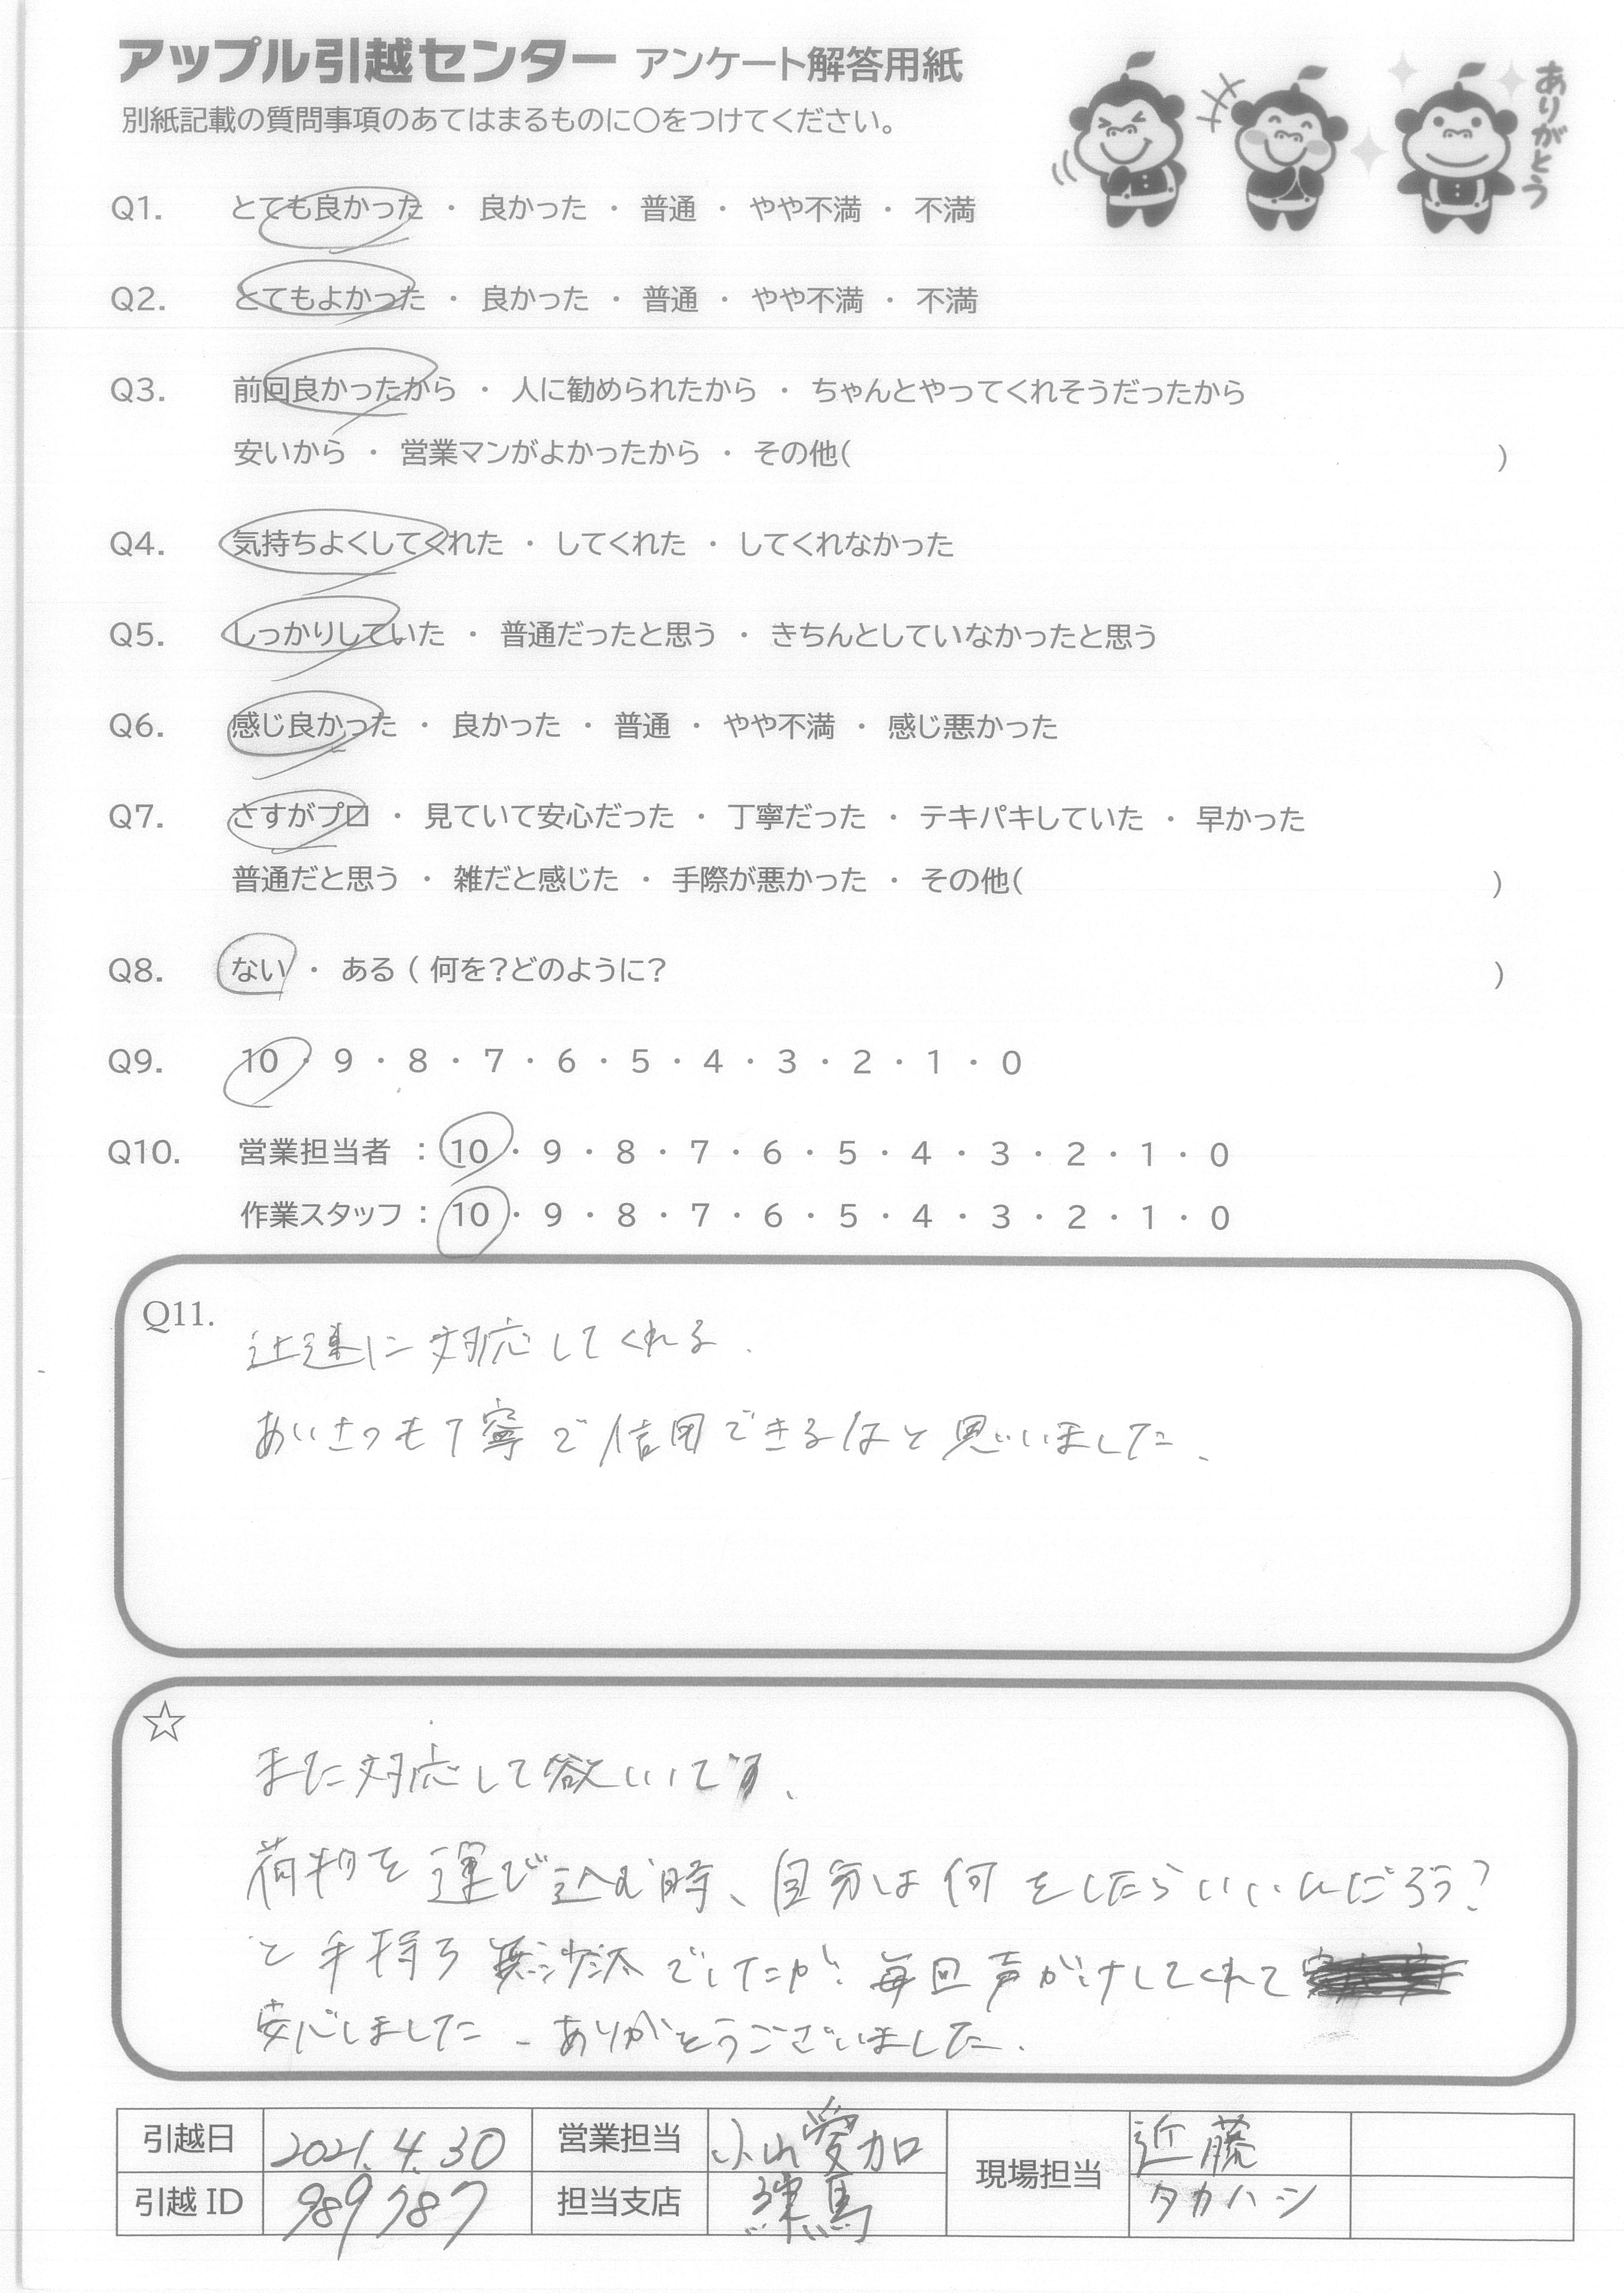 アップル引越センター アンケート解答用紙
別紙記載の質問事項のあてはまるものに〇をつけてください。
ありがとう
Q1. とても良かった ・ 良かった ・ 普通 ・ やや不満 ・ 不満
Q2. とてもよかった ・ 良かった ・ 普通 ・ やや不満 ・ 不満
Q3. 前回良かったから ・ 人に勧められたから ・ ちゃんとやってくれそうだったから
安いから ・ 営業マンがよかったから ・ その他( )
Q4. 気持ちよくしてくれた ・ してくれた ・ してくれなかった
Q5. しっかりしていた ・ 普通だったと思う ・ きちんとしていなかったと思う
Q6. 感じ良かった ・ 良かった ・ 普通 ・ やや不満 ・ 感じ悪かった
Q7. さすがプロ ・ 見ていて安心だった ・ 丁寧だった ・ テキパキしていた ・ 早かった
普通だと思う ・ 雑だと感じた ・ 手際が悪かった ・ その他( )
Q8. ない ・ ある ( 何を?どのように? )
Q9. 10 ・ 9 ・ 8 ・ 7 ・ 6 ・ 5 ・ 4 ・ 3 ・ 2 ・ 1 ・ 0
Q10. 営業担当者 : 10 ・ 9 ・ 8 ・ 7 ・ 6 ・ 5 ・ 4 ・ 3 ・ 2 ・ 1 ・ 0
作業スタッフ : 10 ・ 9 ・ 8 ・ 7 ・ 6 ・ 5 ・ 4 ・ 3 ・ 2 ・ 1 ・ 0
Q11.
に対応してくれる.
あいさつも丁寧で信用できるなと思いました、
☆
また対応して欲いいです、
荷物を運び込む時、自分は何をしたらいいんだろう?
と手持ち無沙汰でしたが、毎回声がけしてくれて
安心しました、ありがとうございました.
引越日 2021.4.30 営業担当 小山愛加 現場担当 近藤
引越 ID 989787 担当支店 練馬 タカハシ